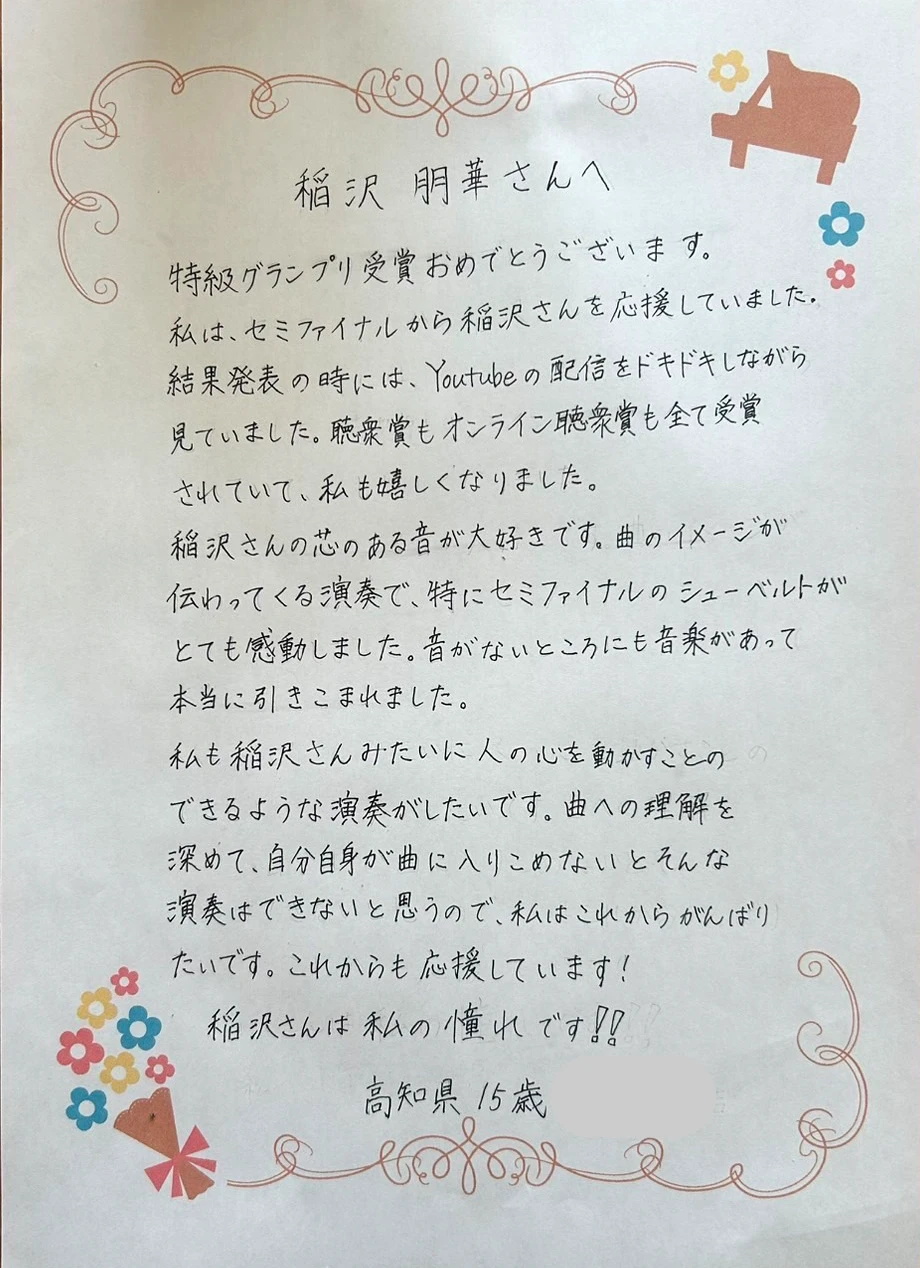 稲沢 朋華さんへ
特級グランプリ受賞おめでとうございます。
私は、セミファイナルから稲沢さんを応援していました。
結果発表の時には、Youtubeの配信をドキドキしながら
見ていました。聴衆賞もオンライン聴衆賞も全て受賞
されていて、私も嬉しくなりました。
稲沢さんの芯のある音が大好きです。曲のイメージが
伝わってくる演奏で、特にセミファイナルのシューベルトが
とても感動しました。音がないところにも音楽があって
本当に引きこまれました。
私も稲沢さんみたいに人の心を動かすことの
できるような演奏がしたいです。曲への理解を
深めて、自分自身が曲に入りこめないとそんな
演奏はできないと思うので、私はこれからがんばり
たいです。これからも応援しています!
稲沢さんは私の憧れです!!
高知県 15歳